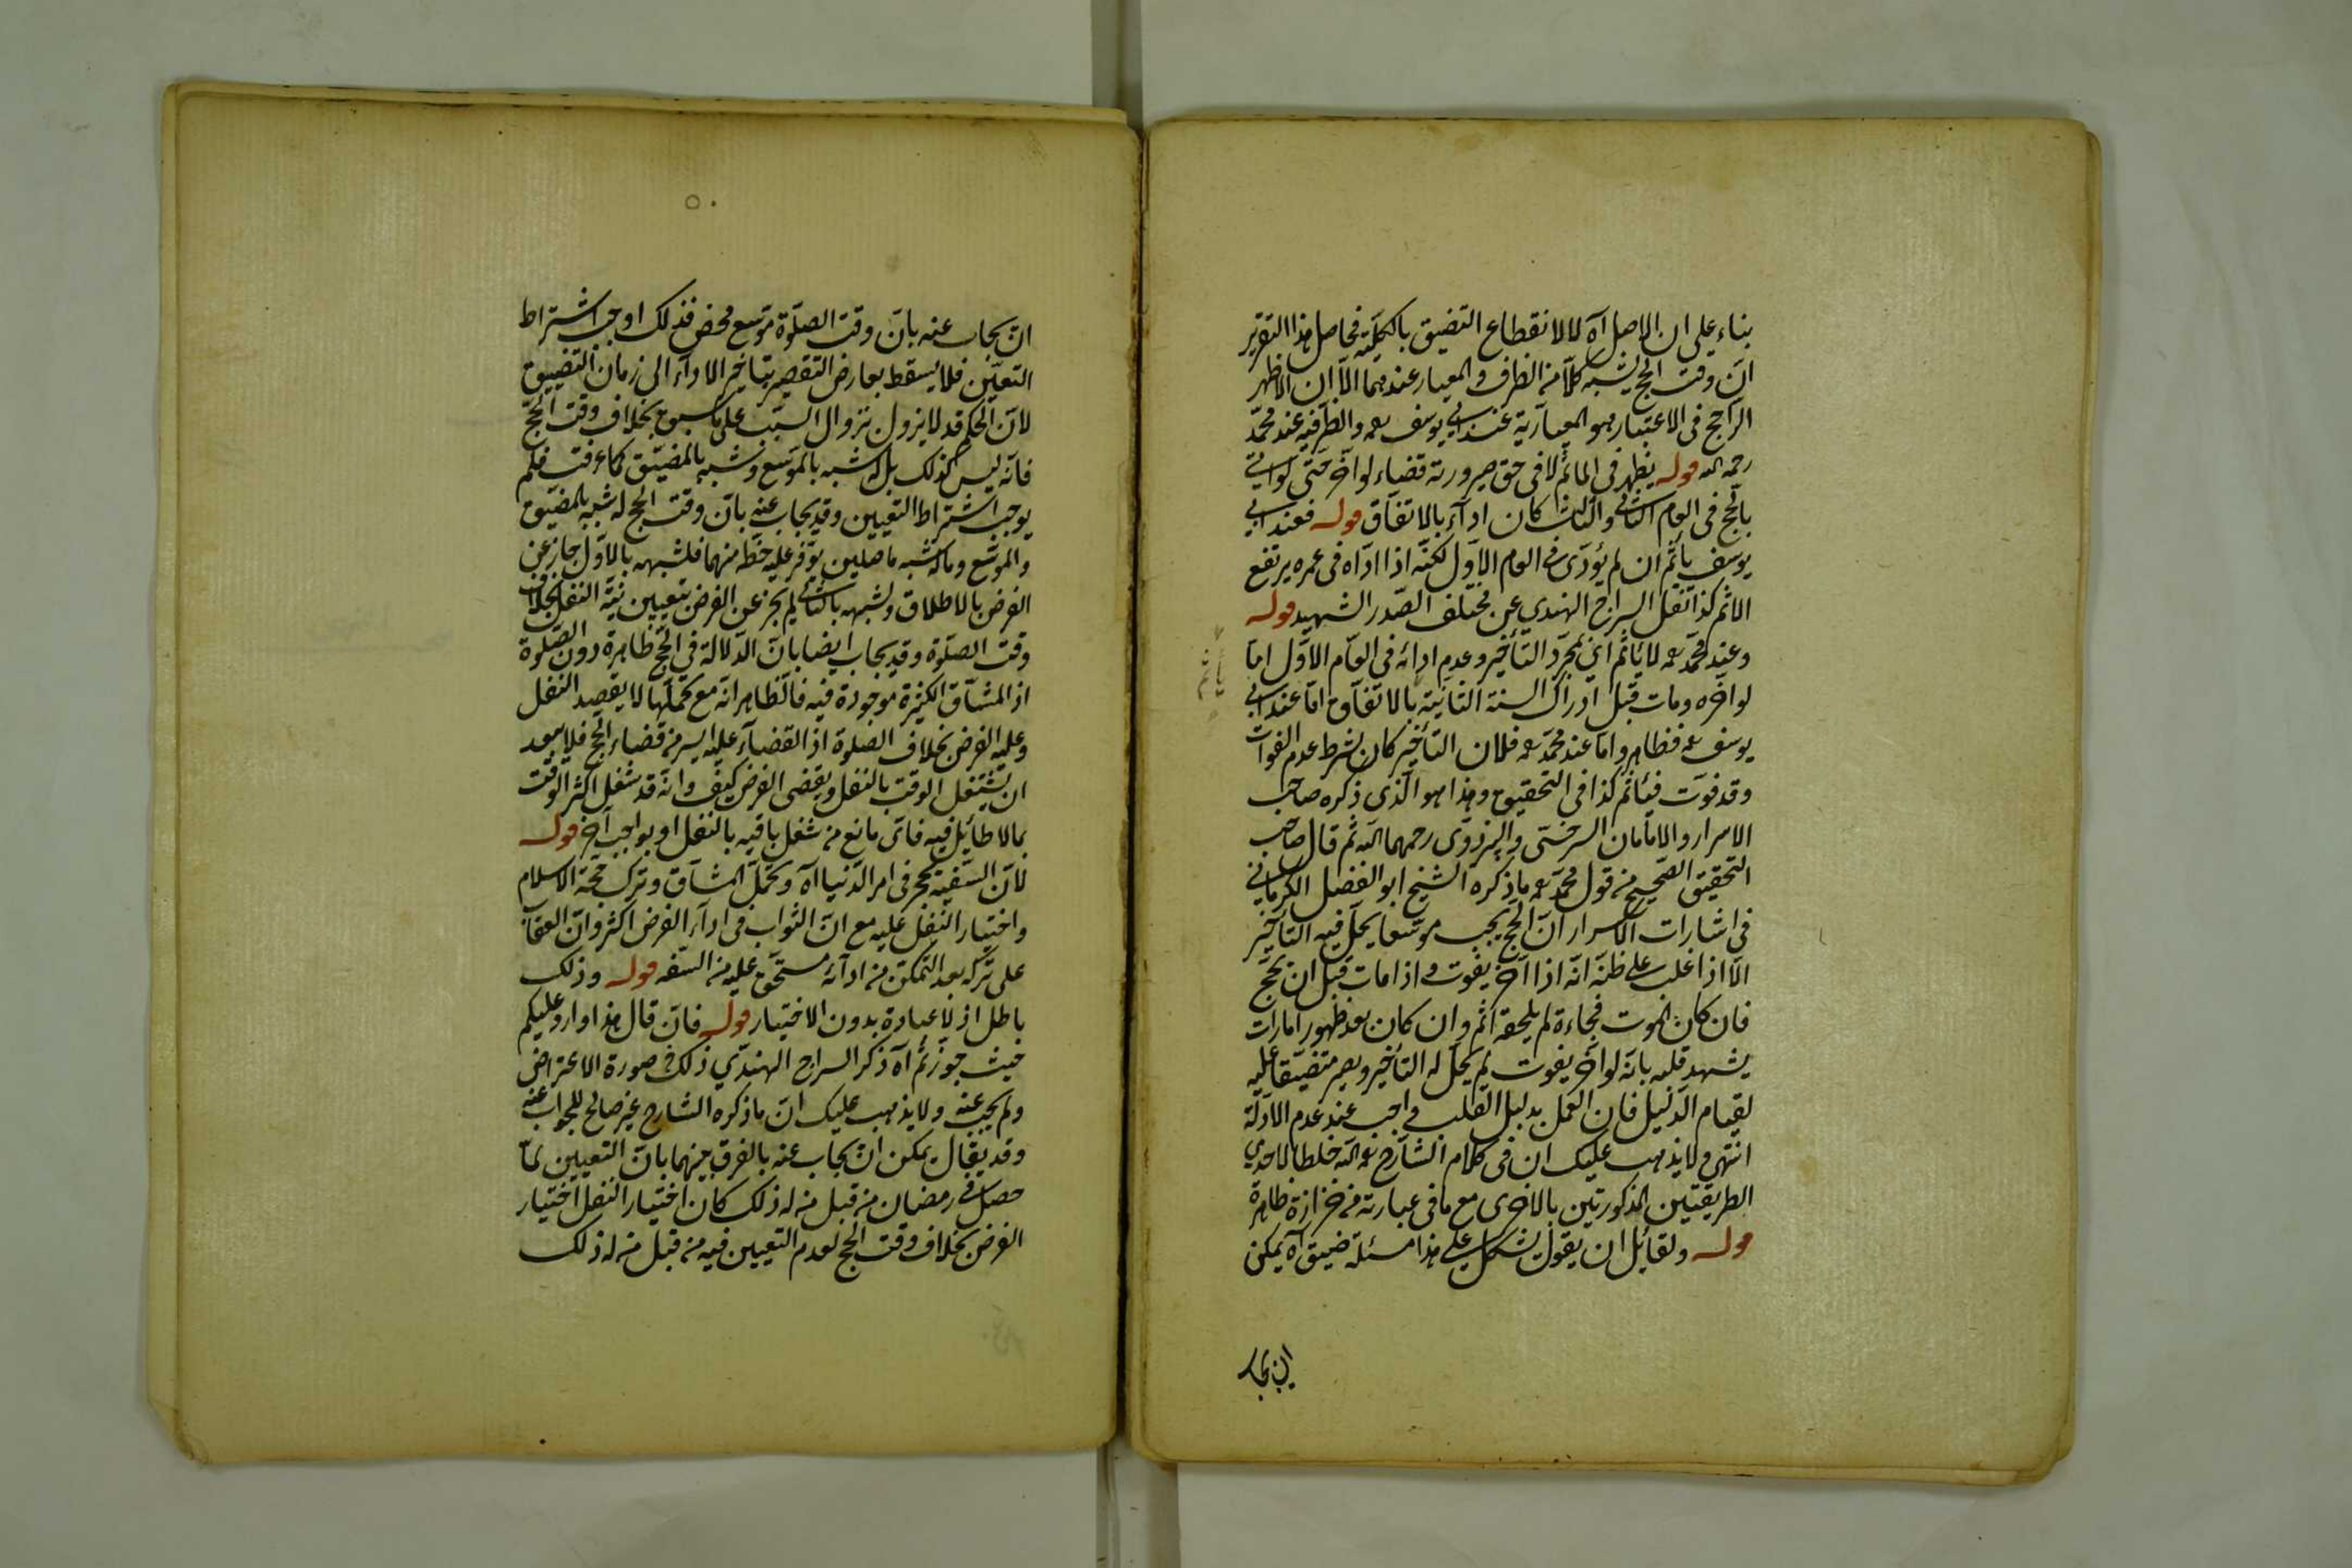 بناء على ان الاصل آه لا لانقطاع التضيق بالكلية فحاصل هذا التقرير
ان وقت الحج يشبه كلا من الظرف والمعيار عندهما الا ان الاظهر
الراجح فى الاعتبار هو المعيارية عند ابى يوسف رحمه والظرفية عند محمد
رحمه الله قوله يظهر فى المأثم لا فى حق صيرورته قضاء لو اخر حتى لو اتى
بالحج فى العام الثانى والثالث كان اداء بالاتفاق قوله فعند ابى
يوسف يأثم ان لم يؤدى فى العام الاول لكنه اذا اداه فى عمره يرتفع
الاثم كذا نقل السراج الهندي عن مختلف الصدر الشهيد قوله
وعند محمد رحمه لا يأثم اى بمجرد التأخير وعدم ادائه فى العام الاول اما
لو اخره ومات قبل ادراك السنة الثانية بالاتفاق اما عند ابى
يوسف رحمه فظاهر واما عند محمد رحمه فلان التأخير كان بشرط عدم الفوات
وقد فوت فيأثم كذا فى التحقيق وهذا هو الذى ذكره صاحب
الاسرار والامامان السرخسى والبزدوى رحمهما الله ثم قال صاحب
التحقيق الصحيح من قول محمد رحمه ما ذكره الشيخ ابو الفضل الكرمانى
فى اشارات الاسرار ان الحج يجب موسعا يحل فيه التأخير
الا اذا غلب على ظنه انه اذا اخر يفوت واذا مات قبل ان يحج
فان كان الموت فجاءة لم يلحقه اثم وان كان بعد ظهور امارات
يشهد قلبه بانه لو اخر يفوت لم يحل له التأخير ويصير متضيقا عليه
لقيام الدليل فان العمل بدليل القلب واجب عند عدم الادلة
انتهى ولا يذهب عليك ان فى كلام الشارح رحمه الله خلطا لاحدى
الطريقتين المذكورتين بالاخرى مع ما فى عبارته من حزازة ظاهرة
قوله ولقائل ان يقول يشكل على هذا مسئلة ضيق آه يمكن
ان يجاب
ان يجاب عنه بان وقت الصلوة موسع محض فذلك اوجب اشتراط
التعين فلا يسقط بعارض التقصير بتأخير الاداء الى زمان التضييق
لان الحكم قد لا يزول بزوال السبب على ما سبق بخلاف وقت الحج
فانه ليس كذلك بل له شبه بالموسع وشبه بالمضيق كما عرفت فلم
يوجب اشتراط التعيين وقد يجاب عنه بان وقت الحج له شبه بالمضيق
والموسع وما له شبه باصلين يوفر عليه حظه منهما فلشبهه بالاول جاز عن
الفرض بالاطلاق ولشبهه بالثانى لم يجز عن الفرض بتعيين نية النفل بخلاف
وقت الصلوة وقد يجاب ايضا بان الدلالة فى الحج ظاهرة دون الصلوة
اذ المشاق الكثيرة موجودة فيه فالظاهر انه مع تحملها لا يقصد النفل
وعليه الفرض بخلاف الصلوة اذ القضاء عليه ايسر من قضاء الحج فلا يبعد
ان يشتغل الوقت بالنفل ويقضى الفرض كيف وانه قد شغل اكثر الوقت
بما لا طائل فيه فاى مانع من شغل باقيه بالنفل او بواجب آخر قوله
لان السفيه يحجر فى امر الدنيا آه وتحمل المشاق وترك حجة الاسلام
واختيار النفل عليه مع ان الثواب فى اداء الفرض اكثر وان العقاب
على تركه بعد التمكن من ادائه مستحق عليه من السفه قوله وذلك
باطل اذ لا عبادة بدون الاختيار قوله فان قال هذا وارد عليكم
حيث جوزتم آه ذكر السراج الهندي ذلك فى صورة الاعتراض
ولم يجب عنه ولا يذهب عليك ان ما ذكره الشارح غير صالح للجواب عنه
وقد يقال يمكن ان يجاب عنه بالفرق بينهما بان التعيين لما
حصل فى رمضان من قبل من له ذلك كان اختيار النفل اختيار
الفرض بخلاف وقت الحج لعدم التعيين فيه من قبل من له ذلك